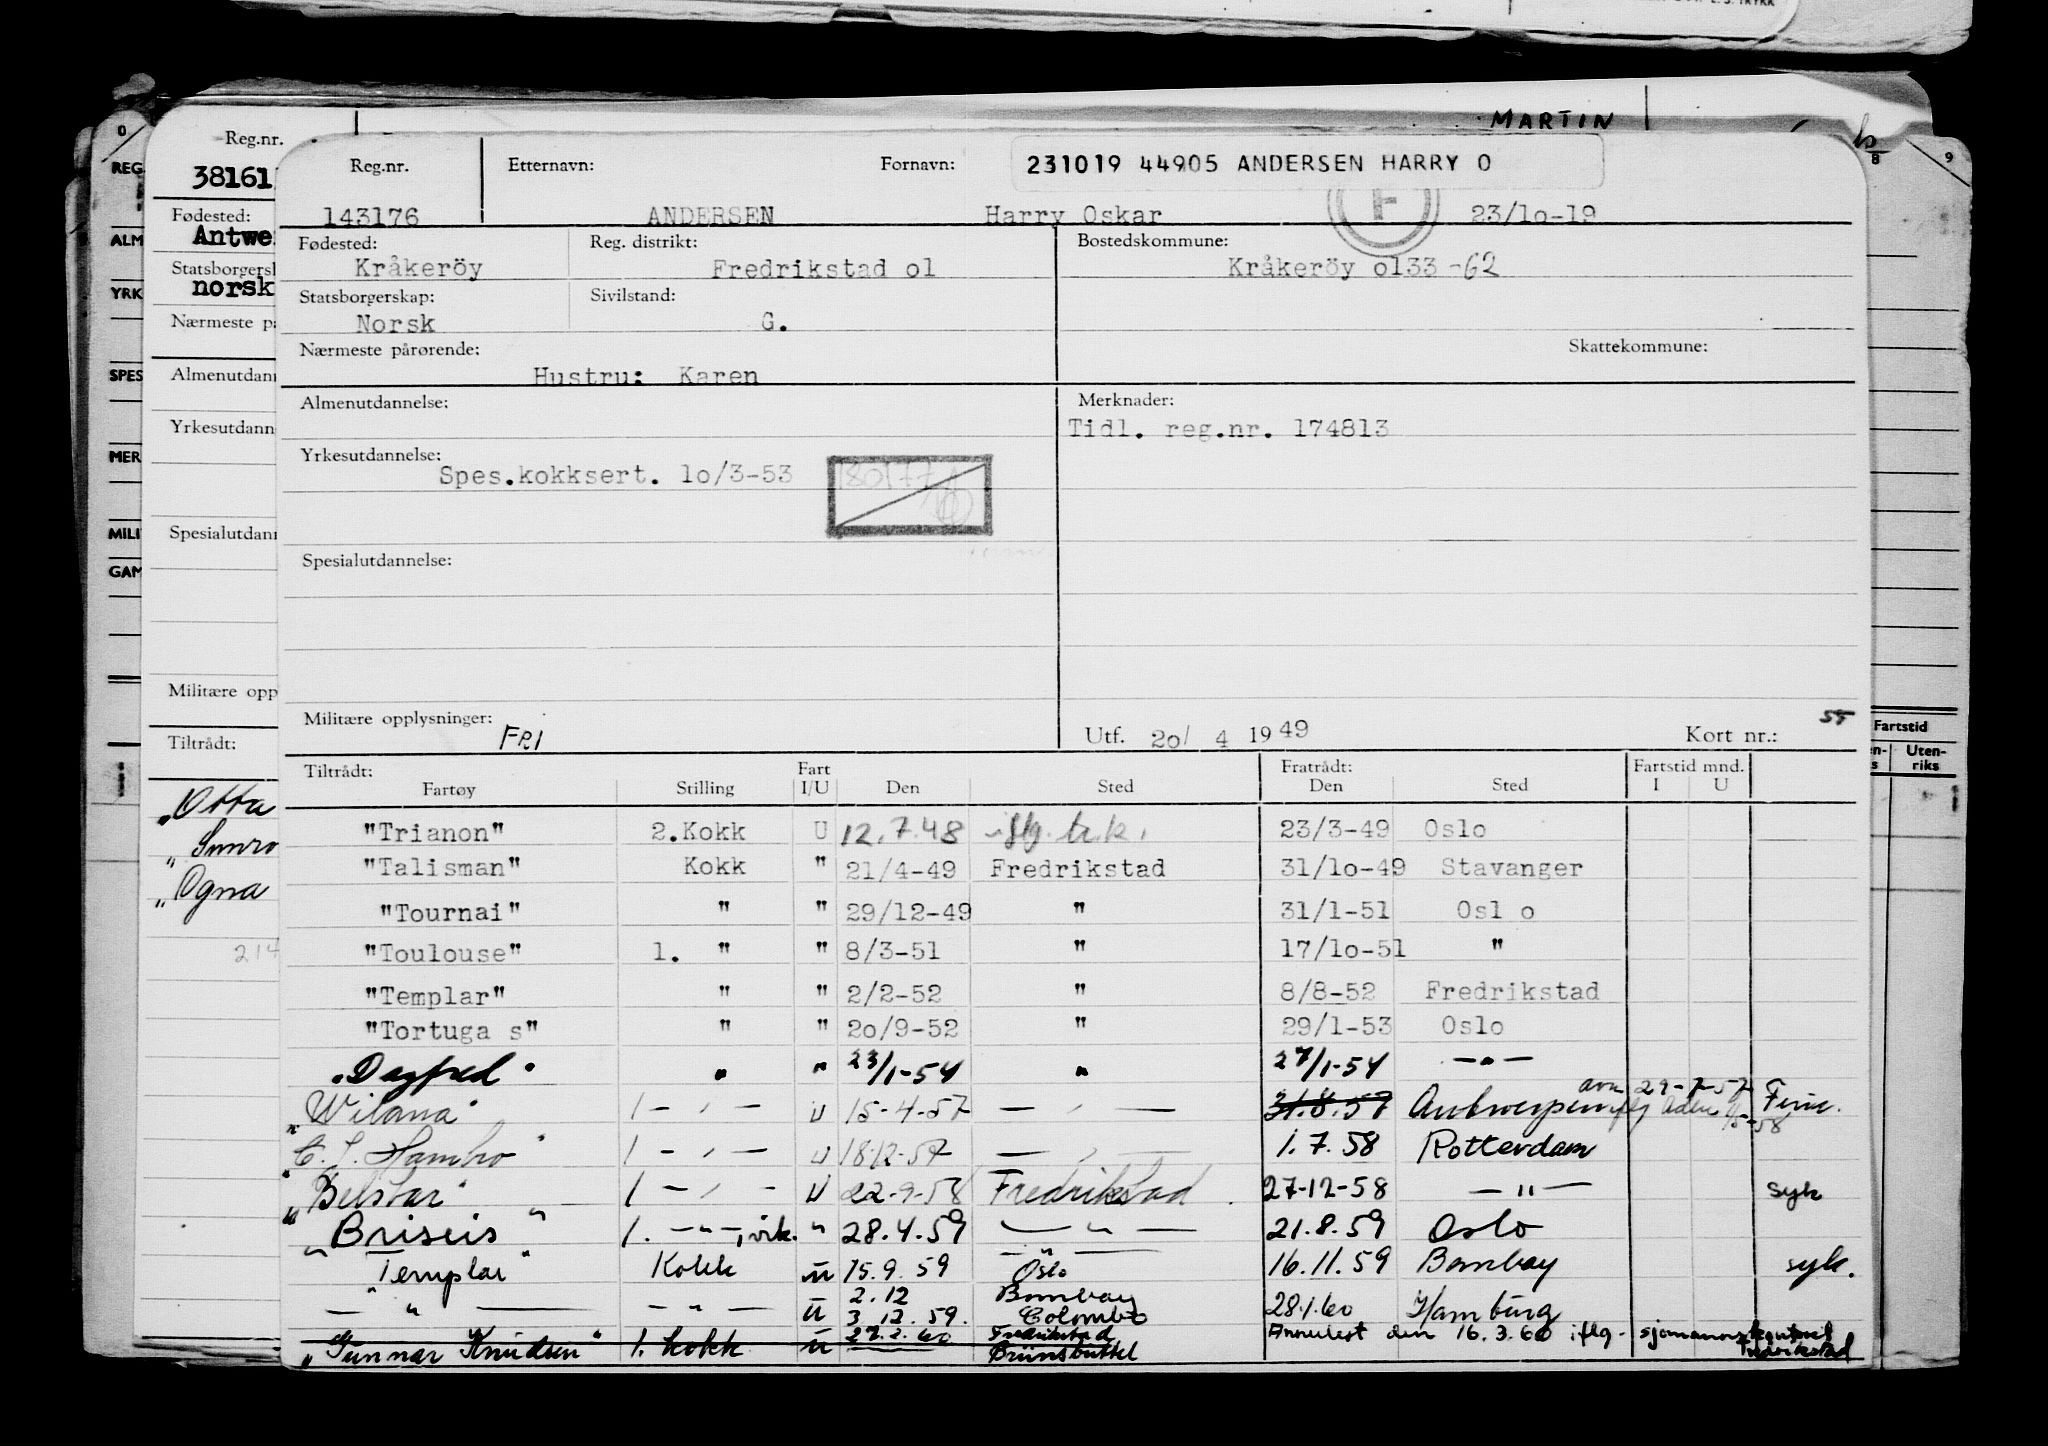 MARTIN
Reg.nr.
38161
Fødested:
Antwe
norsk
Nærmeste p
Almenutdann
Yrkesutdann
Spesialutdann
Militære opp
Tiltrådt:
"Otta
"Ogna
214
REG
ALM
YRK
SPES
MER
MILI
GAM
Fartstid
Uten-
riks
Reg.nr. Etternavn: Fornavn: 231019 44905 ANDERSEN HARRY O
143176 ANDERSEN Harry Oskar F 23/10-19
Fødested: Reg. distrikt: Bostedskommune:
Kråkeröy Fredrikstad 01 Kråkeröy 0133 -62
Statsborgerskap: Sivilstand:
Norsk G.
Nærmeste pårørende: Skattekommune:
Hustru: Karen
Almenutdannelse: Merknader:
Tidl. reg.nr. 174813
Yrkesutdannelse:
Spes.kokksert. 10/3-53
Spesialutdannelse:
Militære opplysninger: FRI Utf. 20/ 4 1949 Kort nr.:
55
Tiltrådt: Fart Fratrådt: Fartstid mnd.
Fartøy Stilling I/U Den Sted Den Sted I U
"Trianon" 2.Kokk U 12.7.48 23/3-49 Oslo
"Talisman" Kokk " 21/4-49 Fredrikstad 31/10-49 Stavanger
"Tournai" " " 29/12-49 " 31/1-51 Osl o
"Toulouse" 1. " " 8/3-51 " 17/10-51 "
"Templar" " " 2/2-52 " 8/8-52 Fredrikstad
"Tortuga s" " " 20/9-52 " 29/1-53 Oslo
"Dagfred" " " 23/1-54 " 27/1-54 — " —
"Wilana" 1 - , - U 15-4-57 — , — 31.8.57 Antwerpen 29-7-57 Ferie.
"C. J. Hambro" 1 - , - U 18.12-57 — , — 1.7.58 Rotterdam
"Belstar" 1 - , - U 22-9-58 Fredrikstad 27-12-58 — " — syk
"Briseis" 1. - " -, vik. " 28.4.59 — " — 21.8.59 Oslo
"Templar" Kokk U 15.9.59 Oslo 16.11.59 Bombay syk.
— " — — " — U 2.12 Bombay
3.12.59. Colombo 28.1.60 Hamburg
"Gunnar Knudsen" 1. kokk U 27.2.60 Fredrikstad Annulert den 16.3.60 iflg. sjømannskontoret
Brünsbuttel Fredrikstad